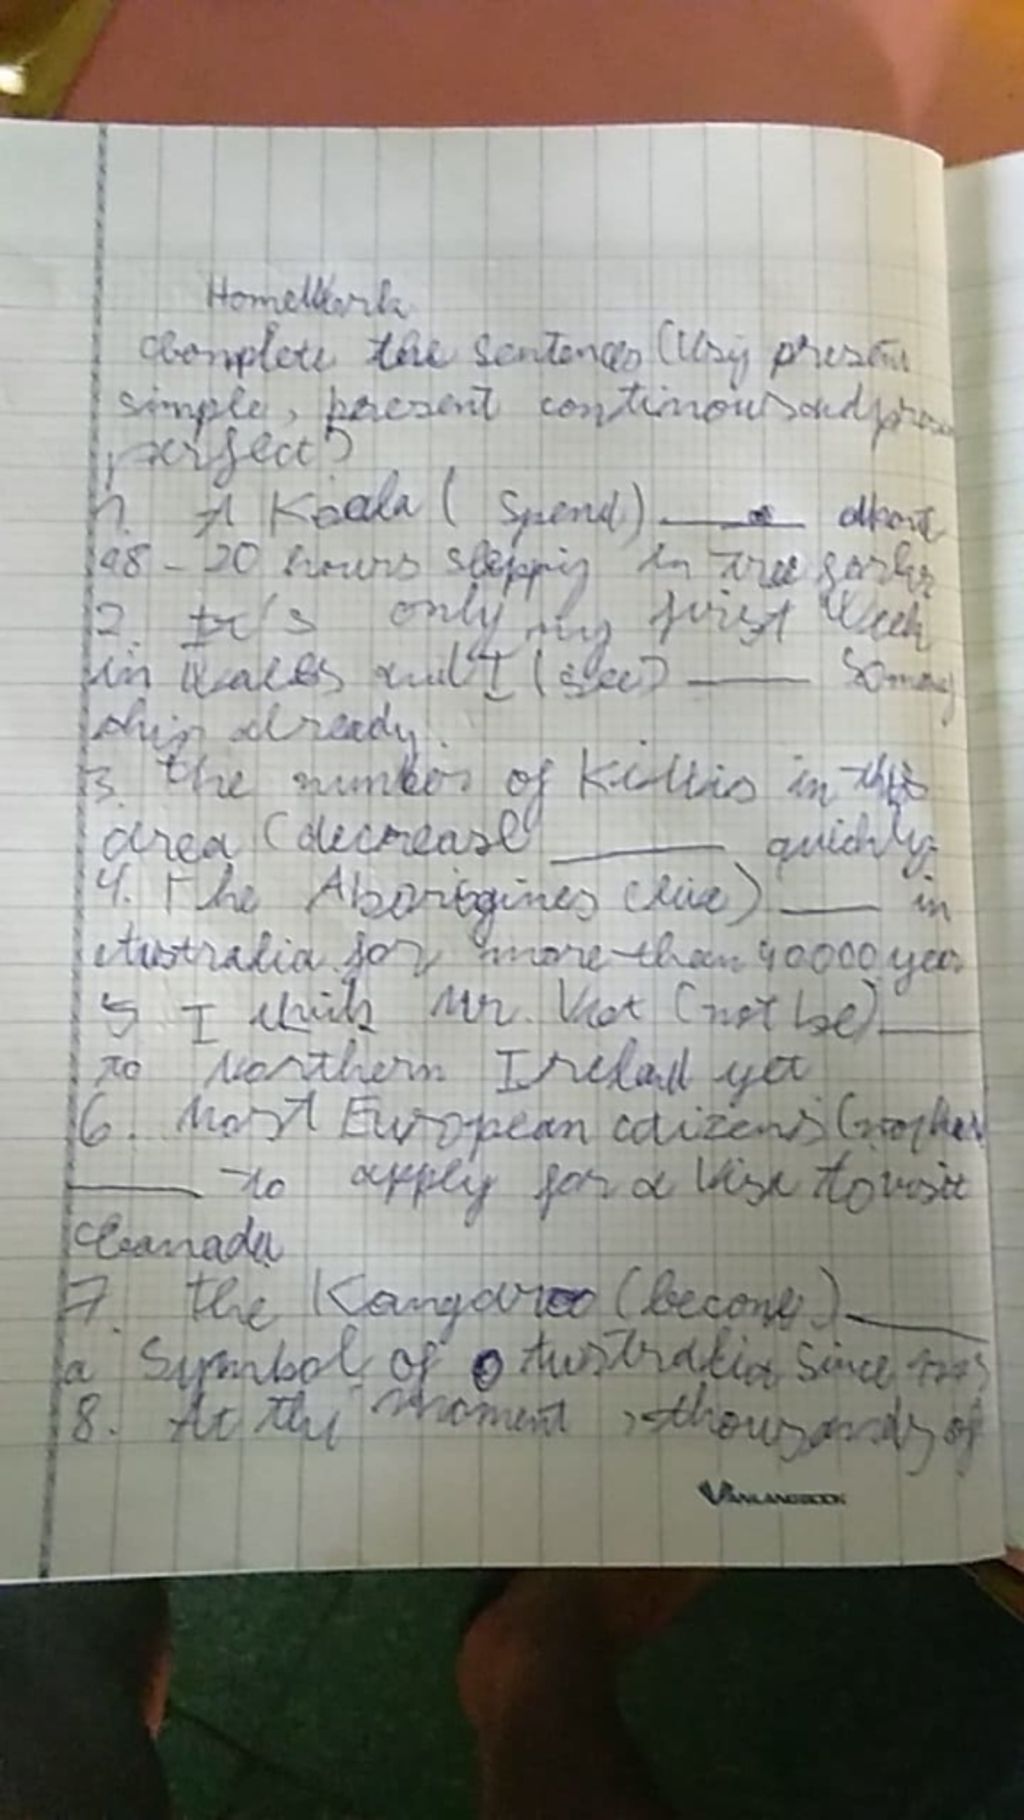 HomeWork
Complete the sentences (Using present
simple, present continous and
perfect)
1. A Koala (Spend) ______ about
18-20 hours in tree
2. It's only my first Week
in Wales and I (see) ______ so many
ship already.
3. The number of in this
area (decrease ______ quickly.
4. The Aborigines (live) ____ in
Australia for more than 40000 year
5 I think Mr. (not be) ____
to Northern yet
6. Most European citizens
______ to apply for a Visa to visit
Canada
7. the Kangaroo (become) ______
a Symbol of Australia Since
8. At the moment, thousands of
VANLANGBOOK